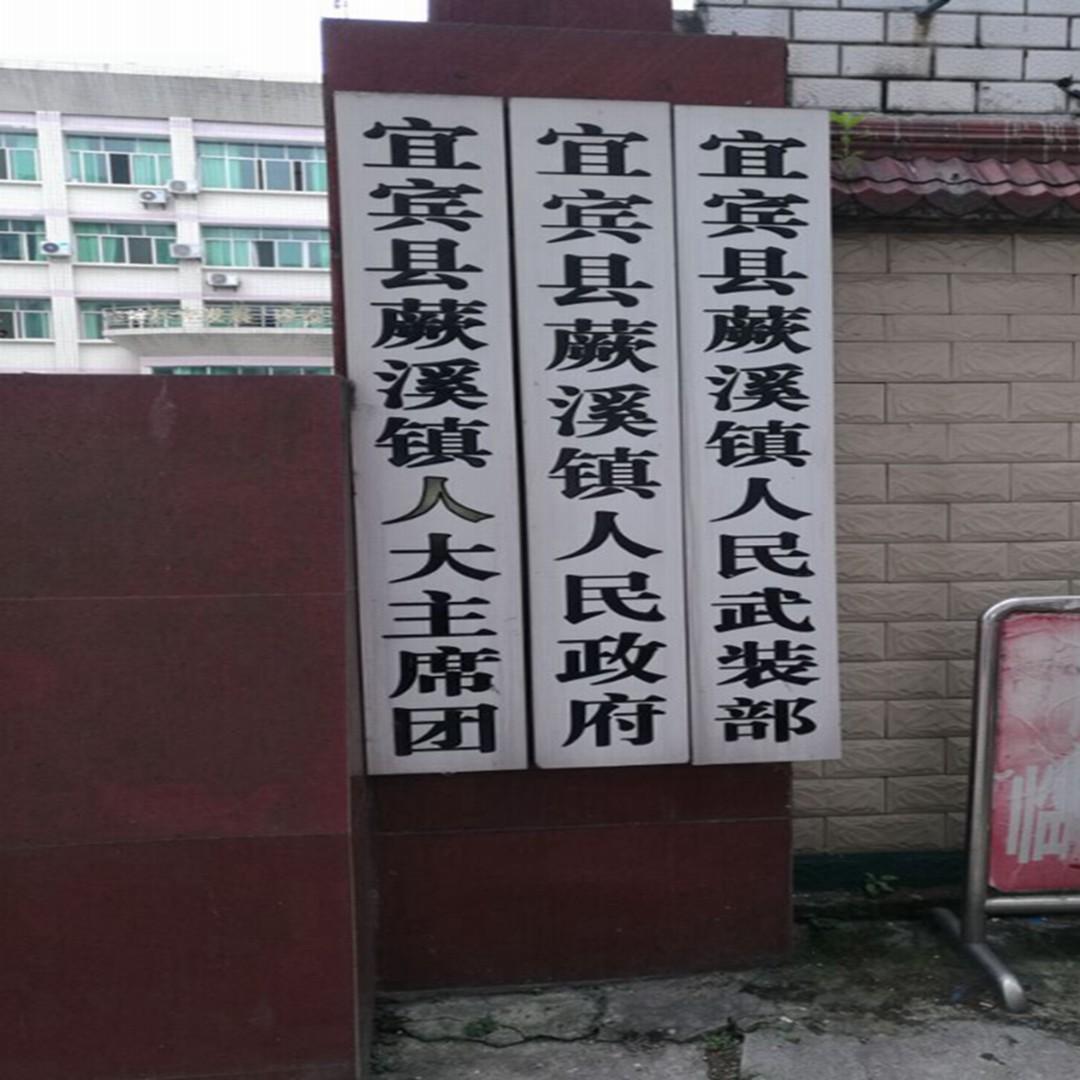 宜宾县蕨溪镇人大主席团
宜宾县蕨溪镇人民政府
宜宾县蕨溪镇人民武装部
临